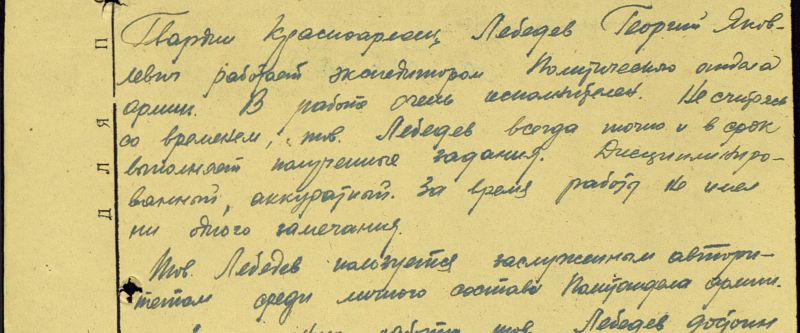 Гвардии Красноармеец Лебедев Георгий Яков-
левич работает экспедитором Политического отдела
армии. В работе очень исполнителен. Не считаясь
со временем, тов. Лебедев всегда точно и в срок
выполняет полученные задания. Дисциплиниро-
ванный, аккуратный. За время работы не имел
ни одного замечания.
Тов. Лебедев пользуется заслуженным автори-
тетом среди личного состава Политотдела армии.
работу тов. Лебедев достоин
ДЛЯ П